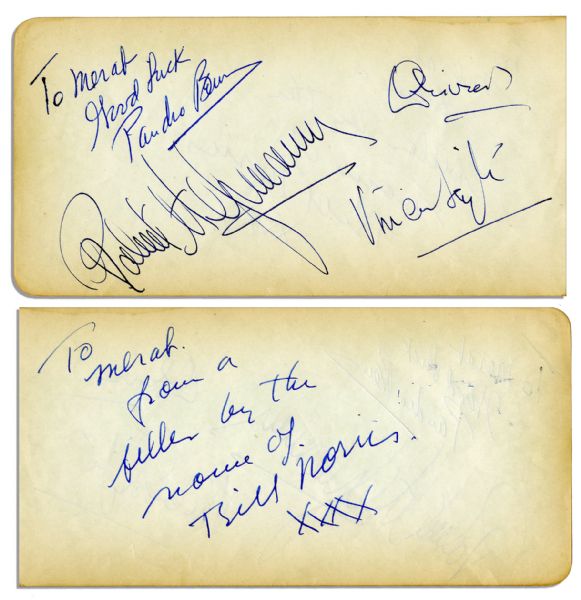 To Merab
Good Luck
Pandro
Robert Helpmann
Olivier
Vivien Leigh
To
merab.
from a
feller by the
name of.
Bill Norris.
XXXX